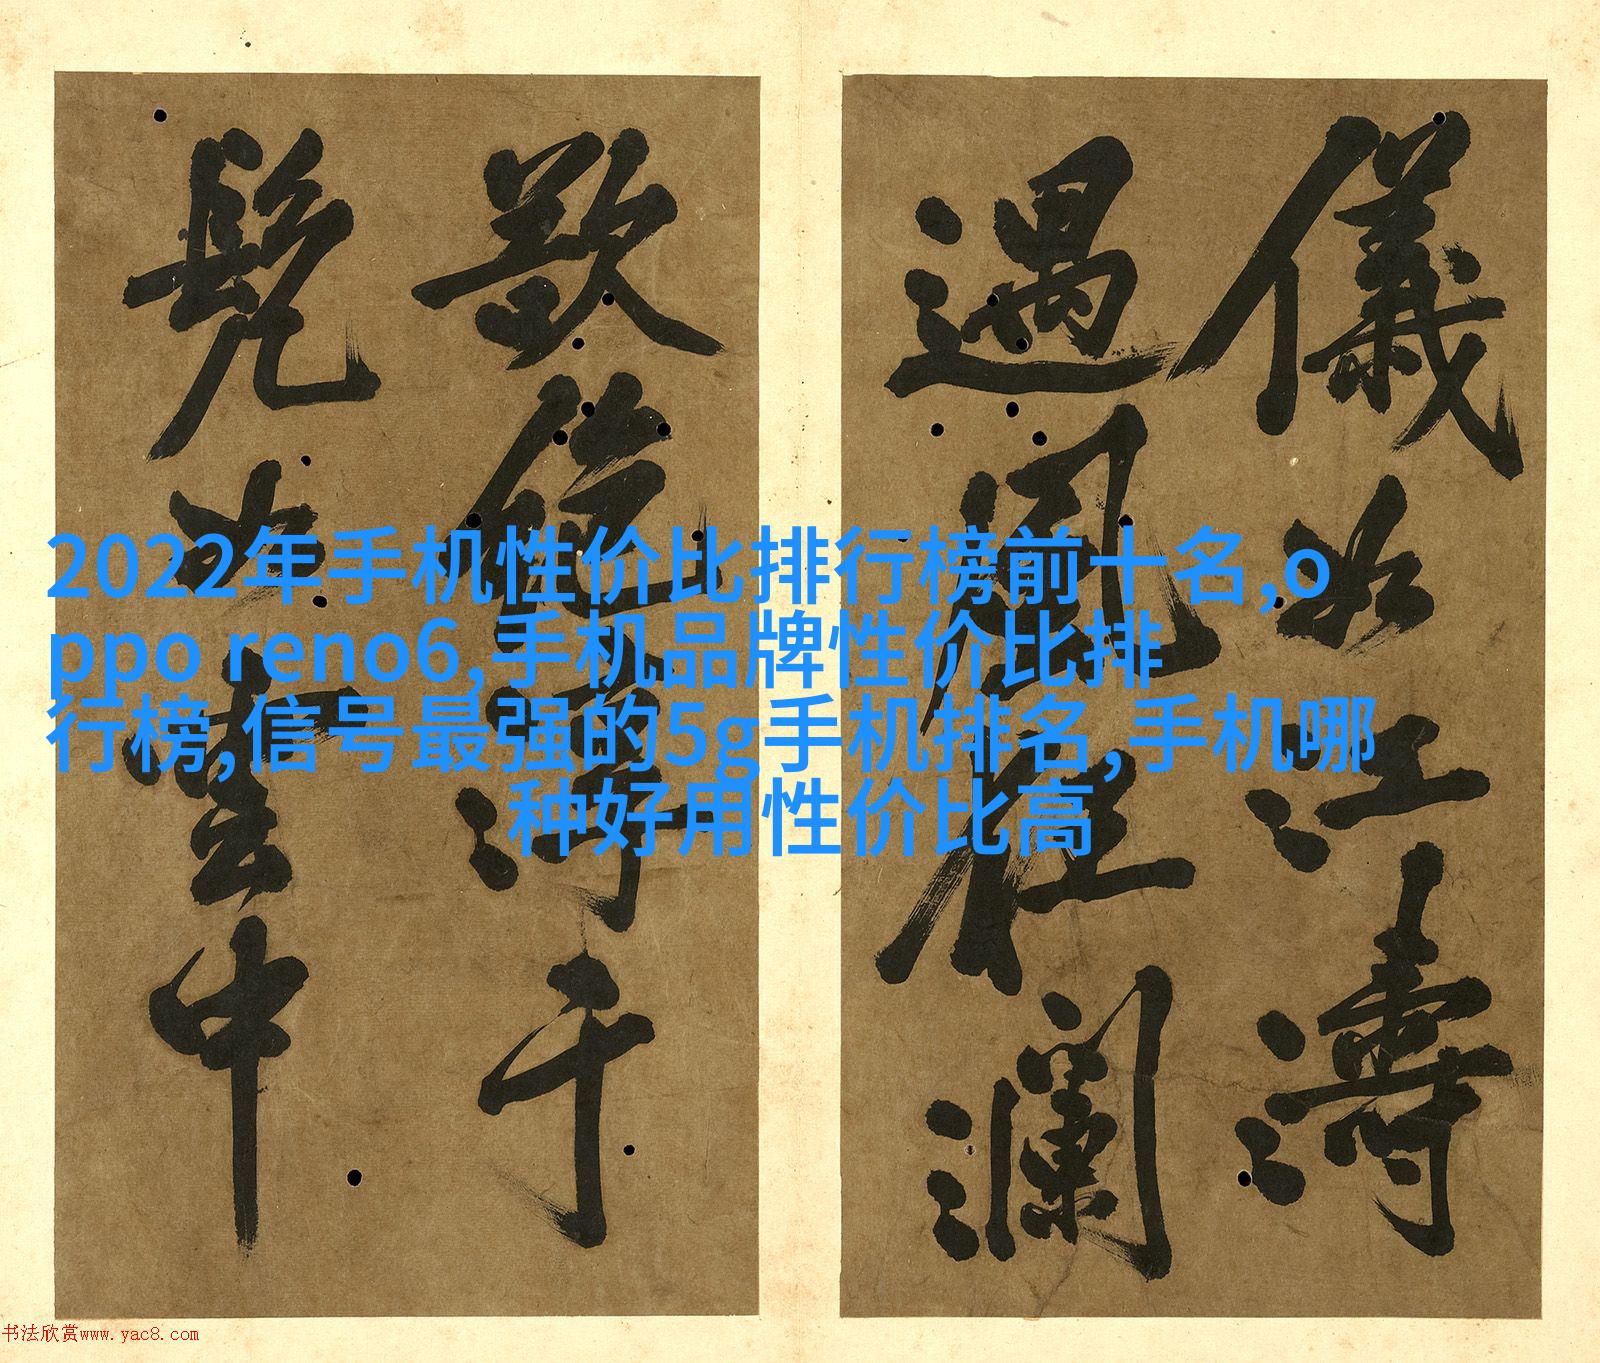 2022年手机性价比排行榜前十名,o
ppo reno6,手机品牌性价比排
行榜,信号最强的5g手机排名,手机哪
种好用性价比高
儀如江濤
遇風狂瀾
于
如雲中
书法欣赏www.yac8.com